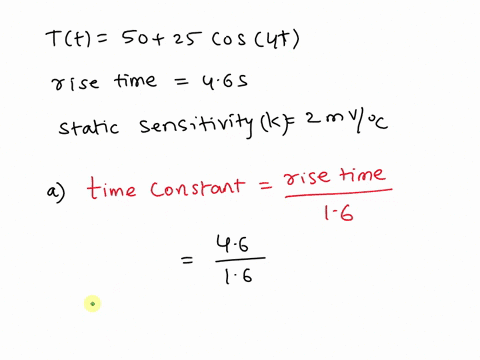 T(t) = 50 + 25 cos(4t)
rise time = 4.6s
static sensitivity (k) = 2 mv/°c
a) time constant = rise time / 1.6
= 4.6 / 1.6